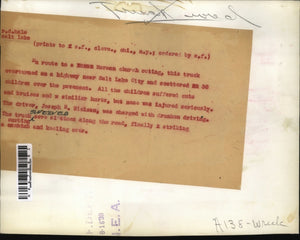 salt lake
(prints to z s.f., cleve, chi, n.y.; orders: by s.f.)
En route to a Mormon church outing, this truck
overturned on a highway near Salt Lake City and scattered 30
children over the pavement. All the children suffered cuts
and bruises and similar hurts, but none was injured seriously.
The driver, Joseph Nielsen, was charged with drunken driving.
SWERVED
The truck along the road, finally striking
a and heeling over.
N.E.A.
A138-Wreck